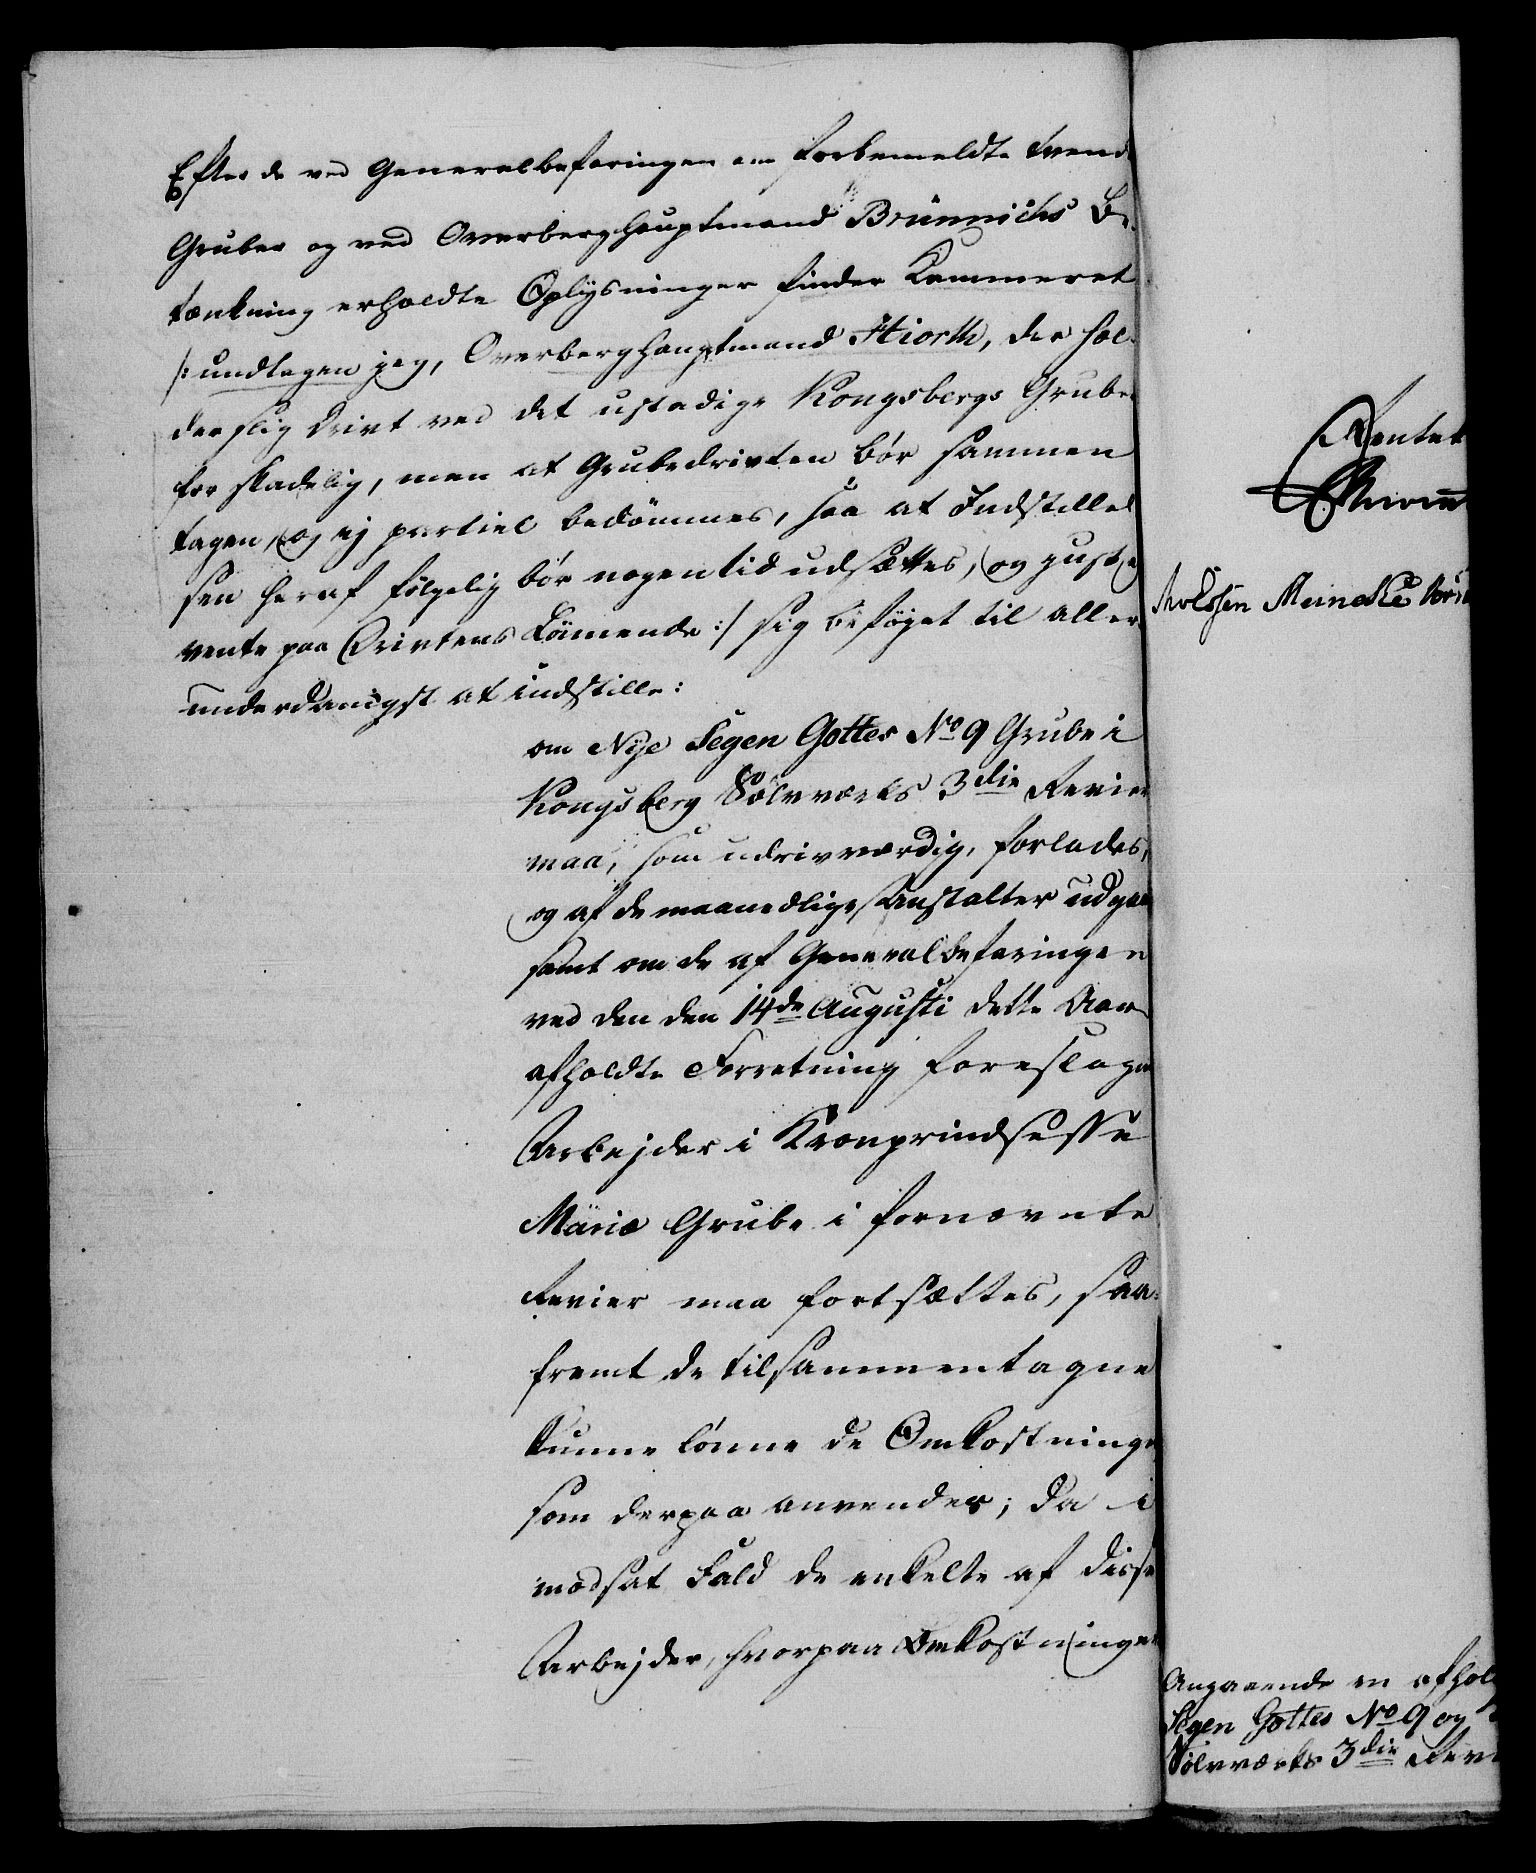 Efter de ved Generalbefaringen om forbemeldte tvende
Gruber og ved Overberghauptmand Brünnichs Be-
tænkning erholdte Oplysninger finder Kammeret
/: undtagen jeg, Overberghauptmand Hiorth, der hol-
der slig Drivt ved det ustadige Kongsbergs Grube
for skadelig, men at Grubedrivten bør sammen
tagen, og ej partiel bedømmes, saa at Indstillel
sen heraf følgelig bør nogen tid udsættes, og
vente paa Drivtens :/ sig beføjet til aller
underdanigst at indstille:
om Nye Segen Gottes No 9 Grube i
Kongsberg Sølvværks 3die Revier
maa, som udrivværdig, forlades,
og af de maanedlige Anstalter udgaa
samt om de af Generalbefaringen
ved den den 14de Augusti dette Aar
afholdte Forretning foreslagne
Arbejder i Kronprindsesse
Mariæ Grube i fornævnte
Revier maa fortsættes, saa-
fremt de tilsammentagne
kunne lønne de Omkostninge
som derpaa anvendes; da i
modsat Fald de enkelte af disse
Arbejder, hvorpaa Omkostninge
Rentek
Meineke
Angaaende en afhol
Segen Gottes No 9 og
Sølvværks 3die Revi